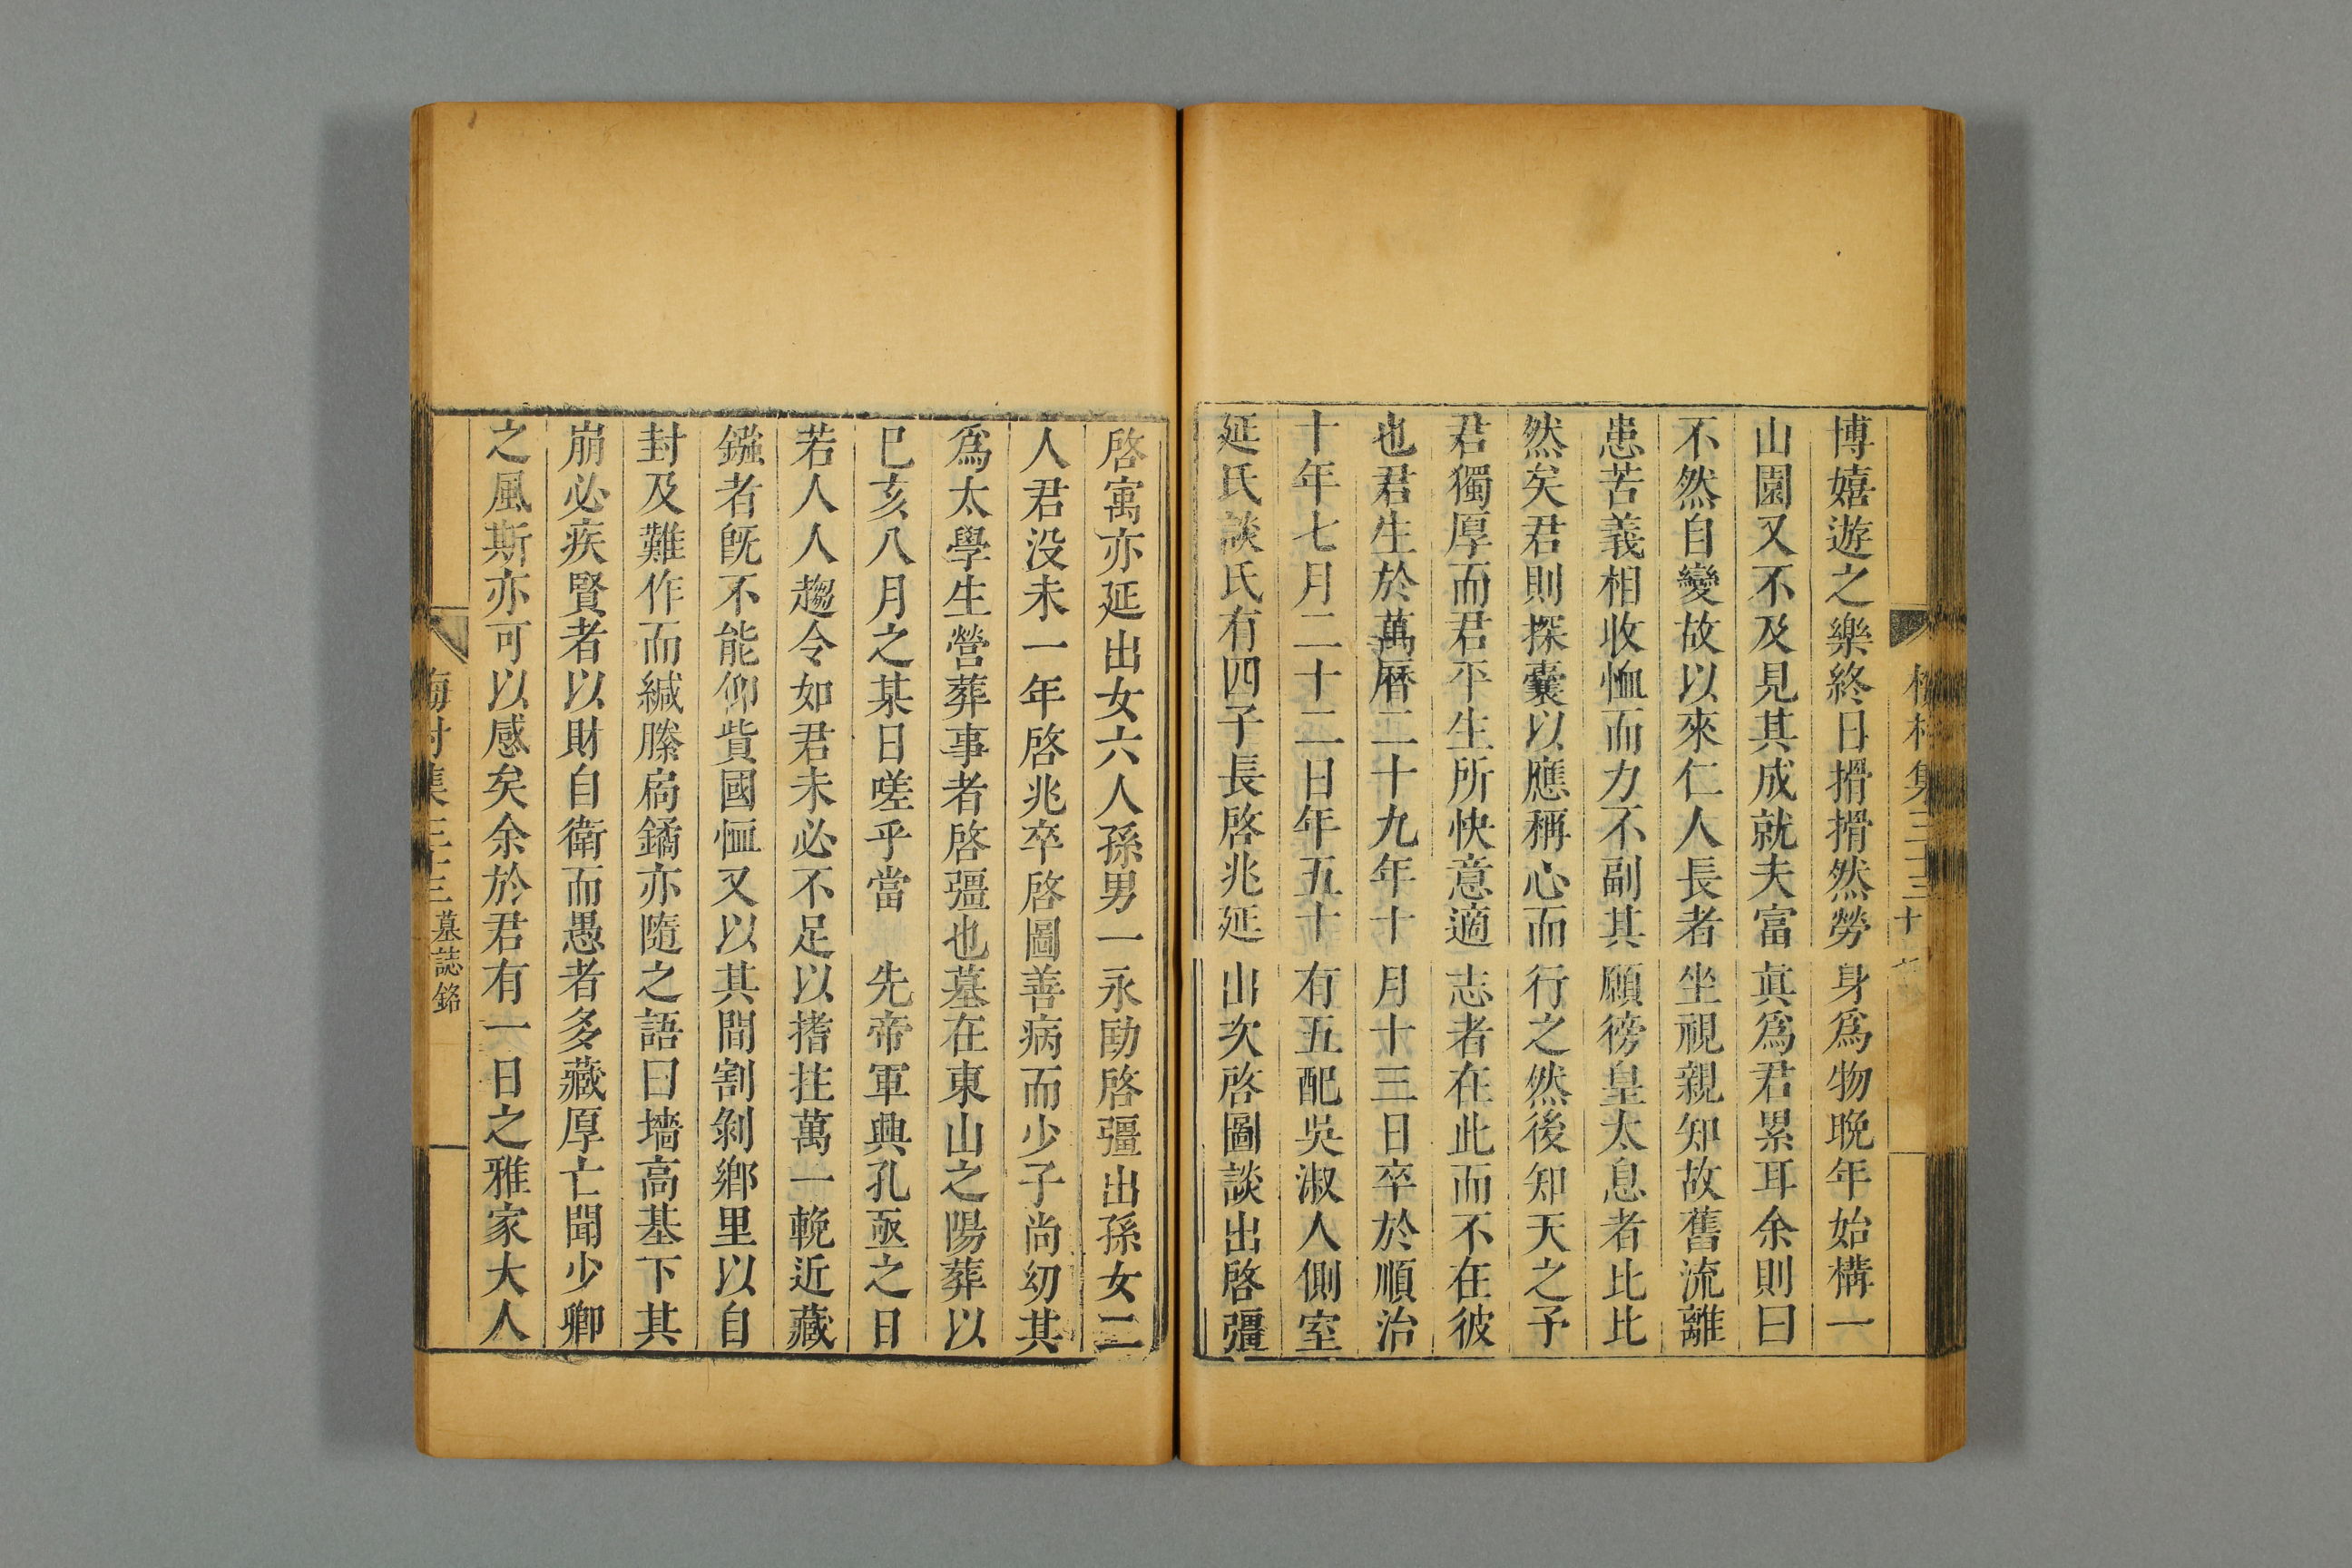 梅村集三十三 十
博嬉遊之樂終日搰搰然勞身爲物晚年始構一
山園又不及見其成就夫富眞爲君累耳余則曰
不然自變故以來仁人長者坐視親知故舊流離
患苦義相收恤而力不副其願徬皇太息者比比
然矣君則探囊以應稱心而行之然後知天之予
君獨厚而君平生所快意適志者在此而不在彼
也君生於萬曆二十九年十月十三日卒於順治
十年七月二十二日年五十有五配吳淑人側室
延氏談氏有四子長啓兆延出次啓圖談出啓彊
啓寓亦延出女六人孫男一永勛啓彊出孫女二
人君没未一年啓兆卒啓圖善病而少子尚幼其
爲太學生營葬事者啓彊也墓在東山之陽葬以
巳亥八月之某日嗟乎當　先帝軍興孔亟之日
若人人趨令如君未必不足以搘拄萬一輓近藏
鏹者旣不能仰貲國恤又以其間割剝鄕里以自
封及難作而緘縢扃鐍亦隨之語曰墻高基下其
崩必疾賢者以財自衛而愚者多藏厚亡聞少卿
之風斯亦可以感矣余於君有一日之雅家大人
梅村集三十三 墓誌銘